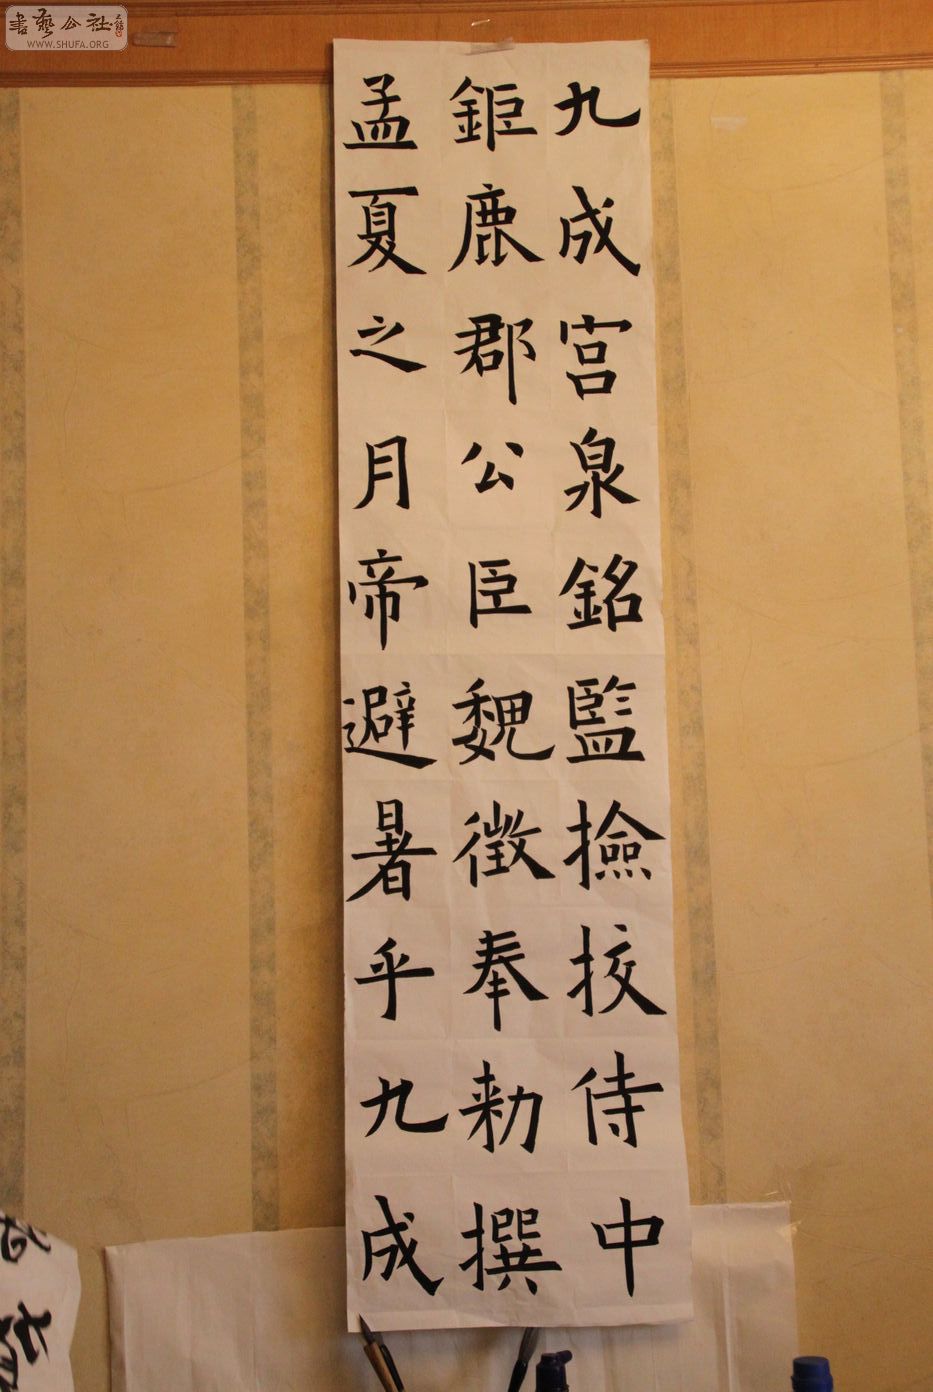 九成宫泉銘監撿挍侍中
鉅鹿郡公臣魏徵奉勑撰
孟夏之月帝避暑乎九成
書藝公社
WWW.SHUFA.ORG